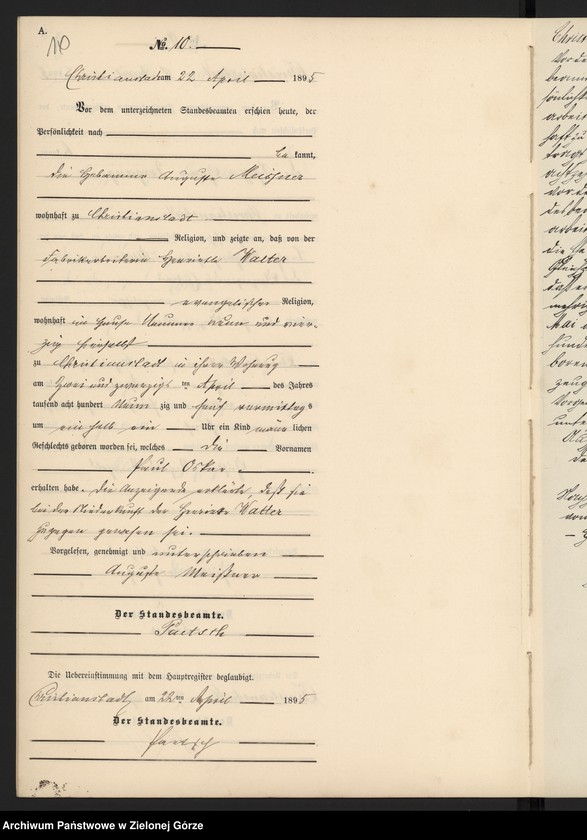 A.
10
No. 10.
Christianstadt am 22 April 1895
Vor dem unterzeichneten Standesbeamten erschien heute, der
Persönlichkeit nach
bekannt,
die Hebamme Auguste Meißner
wohnhaft zu Christianstadt
Religion, und zeigte an, daß von der
Fabrikarbeiterin Henriette Walter
evangelischer Religion,
wohnhaft im Hause Nummer neun und vier-
zig
zu Christianstadt in ihrer Wohnung
am zwei und zwanzigsten April des Jahres
tausend acht hundert neun zig und fünf vormittags
um ein halb ein Uhr ein Kind männlichen
Geschlechts geboren worden sei, welches die Vornamen
Paul Oskar
erhalten habe. Die Anzeigende erklärte, daß sie
bei der Niederkunft der Henriette Walter
zugegen gewesen sei.
Vorgelesen, genehmigt und unterschrieben
Auguste Meißner
Der Standesbeamte.
Die Uebereinstimmung mit dem Hauptregister beglaubigt.
Christianstadt, am 22ten April 1895
Der Standesbeamte.
Archiwum Państwowe w Zielonej Górze